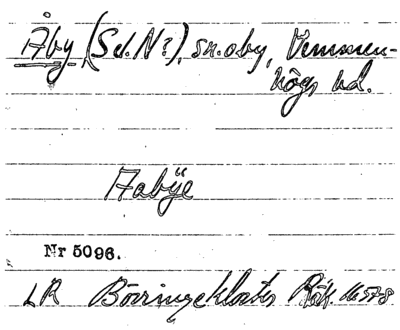 Åby (Sd. N?), sn. o by, Vemmen-
högs hd.
Aabÿe
Nr 5096.
LR Börringekloster Räk. 1657-8